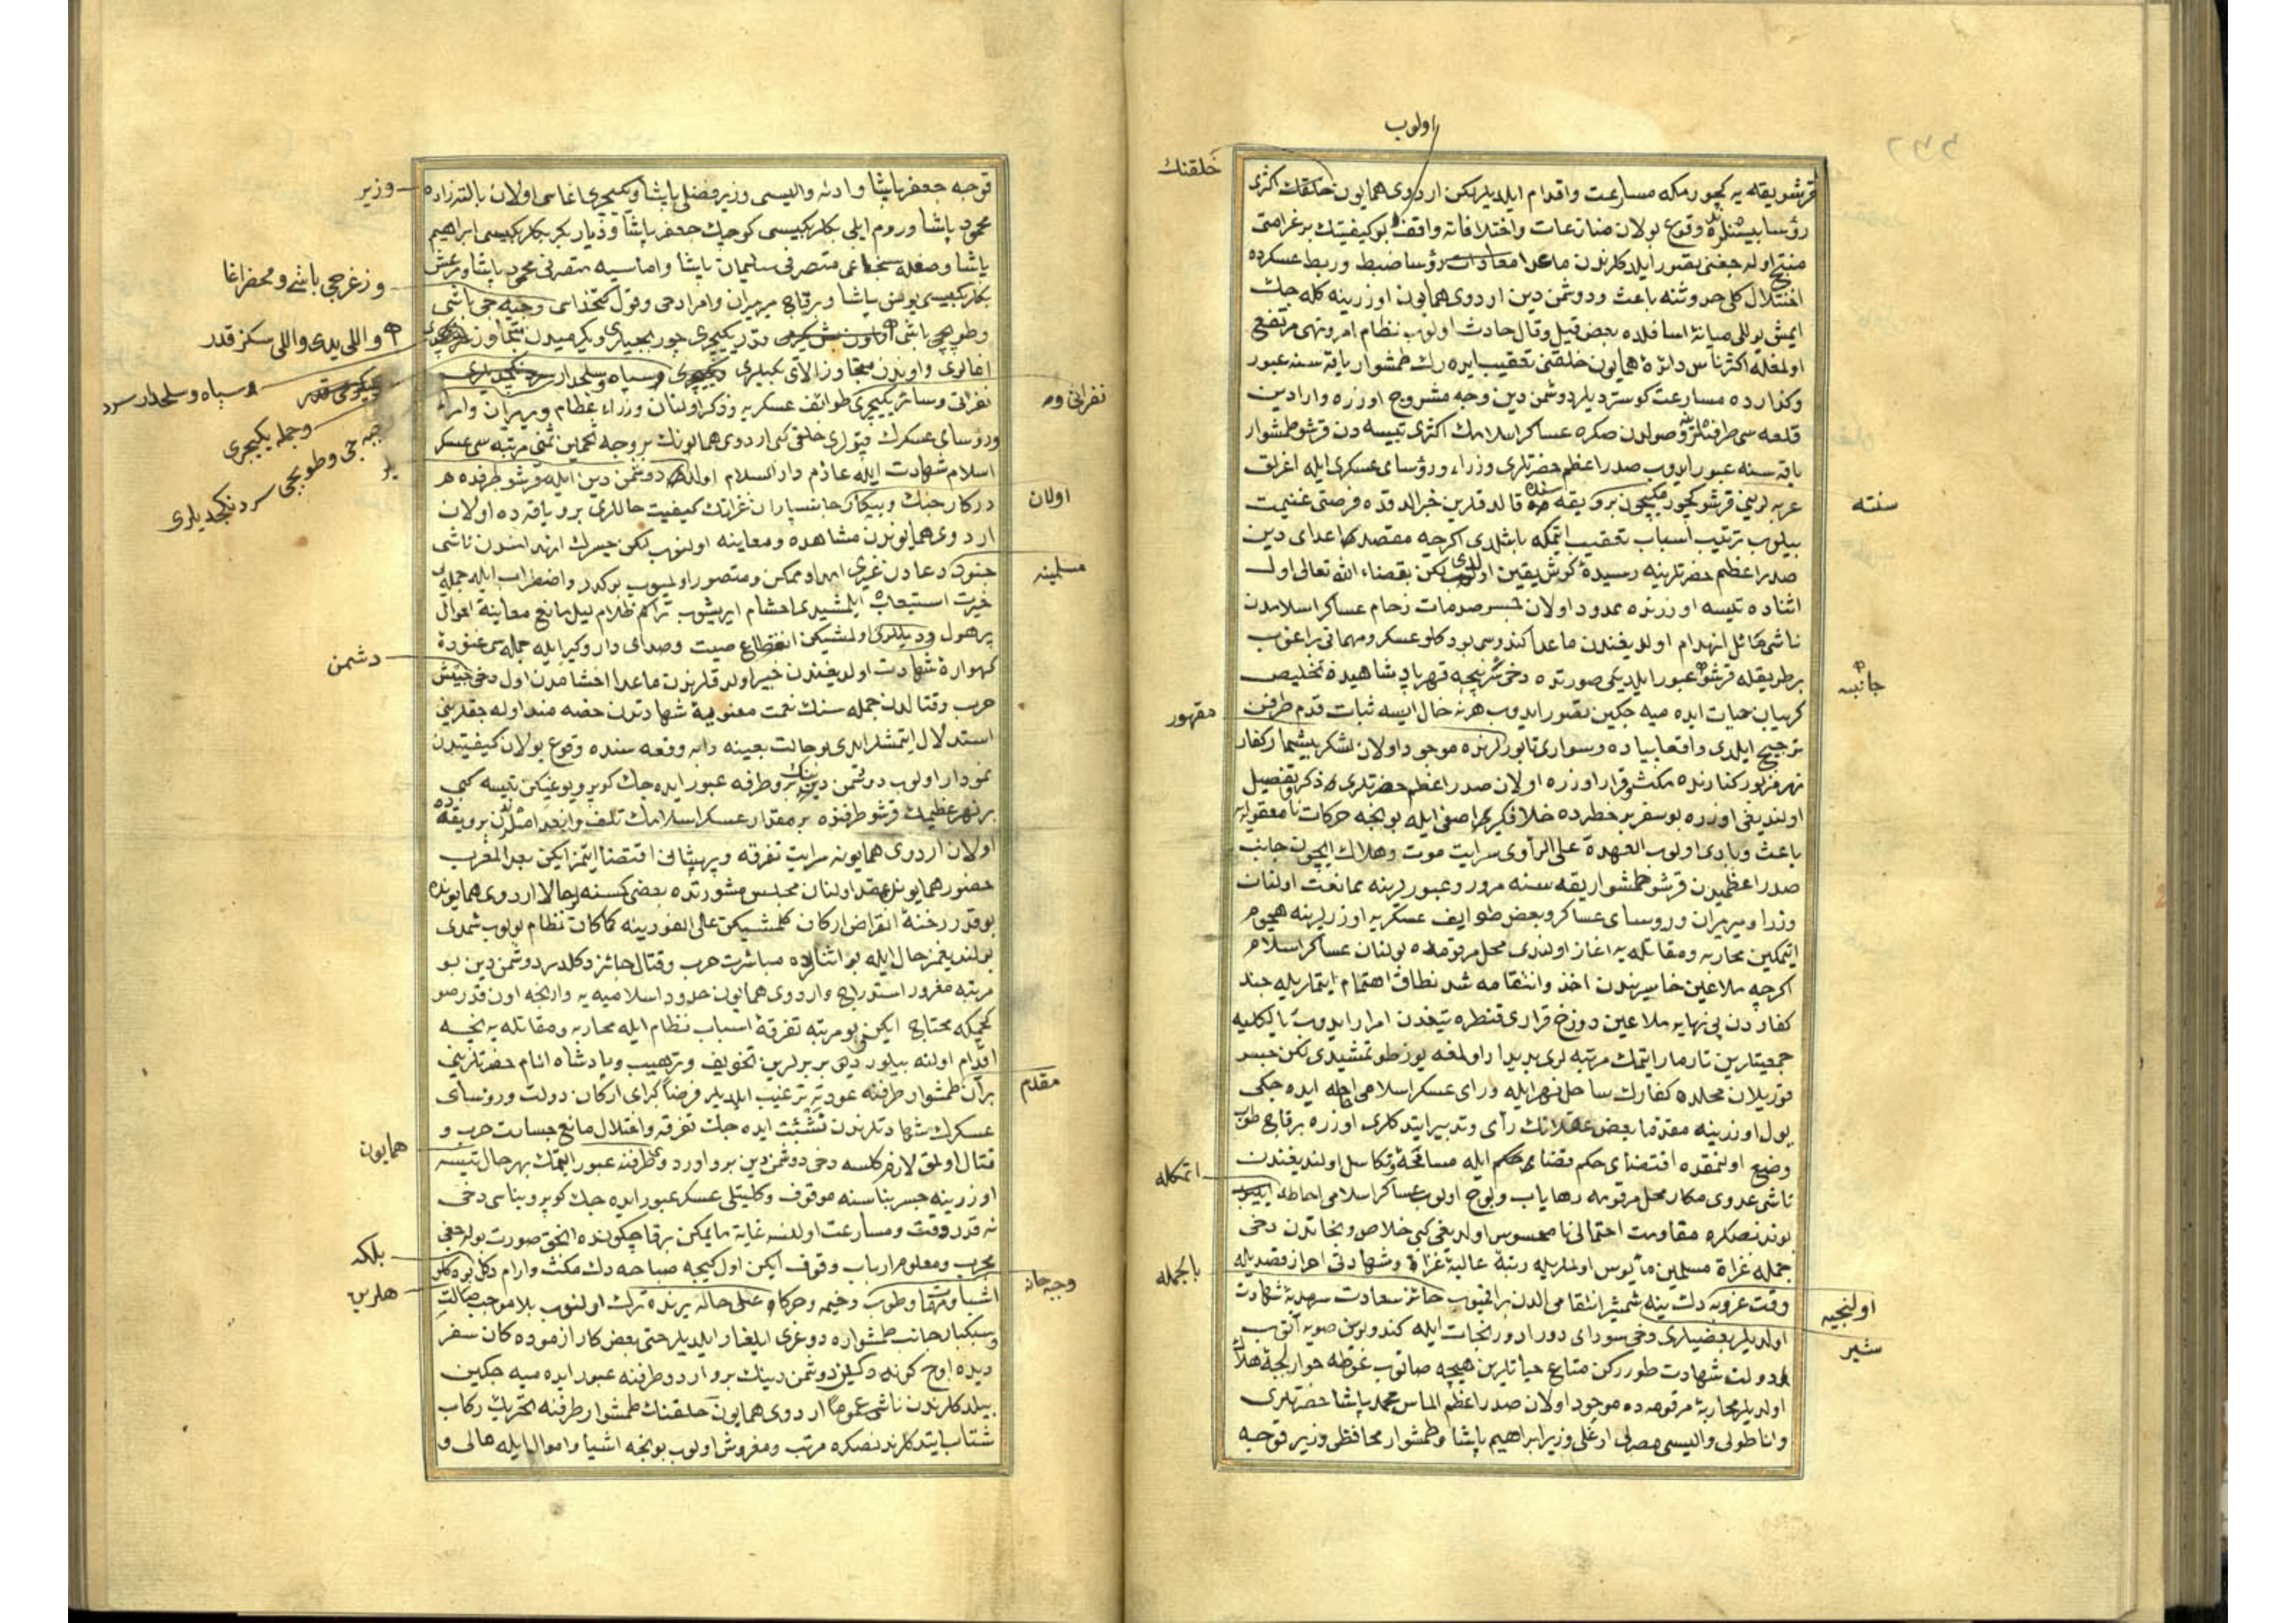 اولوب
خلقنك
قرشو يقه يه كچورمكه مسارعت واقدام ايلديلر لكن اردوی همايون خلقنك اكثری
رؤسا بيننده وقوع بولان منازعات واختلافاته واقف بو كيفيتك بر غرامتی
منتج اوله جغنی تصور ايلدكلرندن ماعدا رؤسا ضبط وربط عسكرده
اختلال كلی حدوثنه باعث ودشمن دين اردوی همايون اوزرينه كله جك
ايمش بوللی ميانهٔ اسافلده بعض قيل وقال حادث اولوب نظام امر ونهی مرتفع
اولمغله اكثر ناس دائرهٔ همايون خلقنی تعقيب ايده رك طمشوار ياقه سنه عبور
وكذارده مسارعت كوسترديلر دشمن دين وجه مشروح اوزره وارادين
قلعه سی طرفنه وصولدن صكره عساكر اسلامك اكثری تيسه دن قرشو طمشوار
ياقه سنه عبور ايدوب صدر اعظم حضرتلری وزراء ورؤسای عسكری ايله اغرلق
عربه لرينی قرشو كچورمكيچون برو يقه ده قالدقلرين خبر الدقده فرصتی غنيمت
سنته
بيلوب ترتيب اسباب تعقيب ايتمكه باشلدی اكرچه مقصد اعدای دين
صدر اعظم حضرتلرينه رسيدهٔ كوش يقين اولدی لكن بقضاء الله تعالی اول
اثناده تيسه اوزرنده ممدود اولان جسر صدمات زحام عساكر اسلامدن
ناشی مائل انهدام اولديغندن ماعدا كندوسی بودكلو عسكر ومهماتی براغوب
بر طريقله قرشو عبور ايلديكی صورتده دخی پنجهٔ قهر پادشاهيدن تخليص
جانبه
كريبان حيات ايده ميه جكين تصور ايدوب هر نه حال ايسه ثبات قدم طرفن
مقهور
ترجيح ايلدی واقعا پياده وسواری تابورلرنده موجود اولان لشكر بيشمار كفار
نهر مزبور كنارنده مكث وقرار اوزره اولان صدر اعظم حضرتلری ذكر وتفصيل
اولنديغی اوزره بو سفر پر خطرده خلاف كير اصفی ايله بونجه حركات نامعقوله
باعث وبادی اولوب العهدة علی الراوی سرايت موت وهلاك ايچون جانب
صدر اعظميدن قرشو طمشوار يقه سنه مرور وعبورلرينه ممانعت اولنان
وزرا وميرميران ورؤسای عساكر وبعض طوايف عسكريه اوزرلرينه هجوم
ايتمكين محاربه ومقاتله يه اغاز اولندی محل مرقومده بولنان عساكر اسلام
اكرچه ملاعين خاسريندن اخذ وانتقامه شد نطاق اهتمام ايتملريله جند
كفاردن بی نهايه ملاعين دوزخ قراری قنطرهٔ تيغدن امرار ايدوب بالكليه
جمعيتلرين تارمار ايتمك مرتبه لری پديدار اولمغه يوز طوتمشيدی لكن جسر
قوريلان محلده كفارك ساحل نهر ايله ورای عسكر اسلامی احاطه ايده جكی
يول اوزرينه مقدما بعض عقلانك رأی وتدبير ايتدكلری اوزره برقاچ طوپ
وضع اولنمقده اقتضای حكم قضا ايله مسامحه وتكاسل اولنديغندن
ناشی عدوی مكار محل مرقومه رهياب ولوج اولوب عساكر اسلامی احاطه
اتمكله
بوندنصكره مقاومت احتمالی نامحسوس اولديغی كبی خلاص ونجاتدن دخی
جمله غزاة مسلمين مأيوس اولملريله رتبهٔ عاليهٔ غزاة وشهادتی احراز قصديله
بالجمله
وقت غروبه دك ينه شمشير انتقامی الدن براقميوب حائز سعادت سرمديهٔ شهادت
اولنجيه
اولديلر بعضيلری دخی سودای دورادور نجات ايله كندولرين صويه آتوب
شير
دولت شهادت طوررکن متاع حياتلرين هيچه صاتوب غوطه خوار لجهٔ هلاك
اولديلر محاربهٔ مرقومه ده موجود اولان صدر اعظم الماس محمد پاشا حضرتلری
واناطولی واليسی مصرلی اوغلی وزير ابراهيم پاشا وطمشوار محافظی وزير قوجه
قوجه جعفر پاشا وادنه واليسی وزير فضلی پاشا ويكيچری اغاسی اولان بالته زاده
وزير
محمود پاشا وروم ايلی بكلربكيسی كوچك جعفر پاشا ودياربكر بكلربكيسی ابراهيم
پاشا وصغله سنجاغی متصرفی سليمان پاشا واماسيه متصرفی محمود پاشا ومرعش
بكلربكيسی يونس پاشا وبرقاچ ميرميران وامرا دخی وقول كتخداسی وجبه جی باشی
وزغرجی باشی ومحضر اغا
وطوپجی باشی قدر يكيچری چوربجيلری ويكرميدن متجاوز
واللی يدی واللی سكز قدر
اغالری واوندن متجاوز الای بكلری وسپاه وسلحدار
سپاه وسلحدار سرد
نفراتی وسائر يكيچری طوائف عسكريه وذكر اولنان وزراء عظام وميرميران وامراء
نفراتی ومه
وجمله يكيچری
جبه جی وطوپجی سردنكچديلری
ورؤسای عسكرك قپولری خلقی كبی اردوی همايونك بر وجه تخمين ثمنی مرتبه سی عسكر
اسلام شهادت ايله عازم دار السلام اولدی دشمن دين ايله قرشو طرفده هر
دركار جنك وپيكار جانسپاران غزاتك كيفيت حاللری برو ياقه ده اولان
اولان
اردوی همايوندن مشاهده ومعاينه اولنوب لكن جسرك انهدامندن ناشی
جنود دعادن غيری امداد ممكن ومتصور اولميوب بو كدر واضطراب ايله جمله يی
مسلمينه
حيرت استيعاب ايلمشيدی تا حشام ايريشوب تراكم ظلام ليل مانع معاينهٔ احوال
پرهول اولمشيكن انقطاع صيت وصدای دار وكير ايله جمله سی غنودهٔ
كهوارهٔ شهادت اولديغندن خبير اولدقلرندن ماعدا اخشامدن اول دخی جيش
دشمن
حرب وقتالدن جمله سنك نعمت معنويهٔ شهادتدن حصه مند اوله جقلرينی
استدلال ايتمشلر ايدی بو حالت بعينه وقعه سنده وقوع بولان كيفيتدن
نمودار اولوب دشمن دينك برو طرفه عبور ايده جك كوپری يوغيكن تيسه كبی
بر نهر عظيمك قرشو طرفنده بر مقدار عسكر اسلامك تلف وانعدامندن برو يقه ده
اولان اردوی همايونه سرايت تفرقه وپريشانی اقتضا ايتمز ايكن بعد المغرب
حضور همايونده عقد اولنان مجلس مشورتده بعضی كسنه لر حالا اردوی همايونده
بو قدر رخنهٔ انقراض اركان كلمشيكن علی الفور ينه كماكان نظام بولوب شمدی
بولنديغمز حال ايله بو اثناده مباشرت حرب وقتال جائز دكلدر دشمن دين بو
مرتبه مغرور استدراج واردوی همايون حدود اسلاميه يه وارنجه اون قدر صو
كچمكه محتاج ايكن بو مرتبه تفرقهٔ اسباب نظام ايله محاربه ومقاتله يه نيجه
اقدام اولنه بيلور ديو بربرلرين تخويف وترهيب وپادشاه انام حضرتلرينی
بر آن طمشوار طرفنه عودته ترغيب ايلديلر فرضا كرای اركان دولت ورؤسای
مقدم
عسكرك شهادتلرندن تشتت ايده جك تفرقه واختلال مانع جسارت حرب و
قتال اولمق لازم كلسه دخی دشمن دين برو اوردو طرفنه عبور ايتمك بهر حال تيسه
همايون
اوزرينه جسر بناسنه موقوف وكليتلی عسكر عبور ايده جك كوپرو بناسی دخی
نه قدر وقت ومسارعت اولنسه غاية ما يمكن برقاچ كونده انجق صورت بوله جغی
مجرب ومعلوم ارباب وقوف ايكن اول كيجه صباحه دك مكث وارام دكل بو دكلو
بلكه
اشيا وطوپ وخيمه وخركاه علی حاله يرنده ترك اولنوب بلا موجب
وجبه خانه
سبكبار جانب طمشواره دوغری ايلغار ايلديلر حتی بعض كار ازموده كان سفر
ديده اوچ كونه دكين دشمن دينك برو اردو طرفنه عبور ايده ميه جكين
بيلدكلرندن ناشی عموما اردوی همايون خلقنك طمشوار طرفنه تحريك ركاب
شتاب ايتدكلرندنصكره مرتب ومفروش اولوب بونجه اشيا واموال ايله خالی و